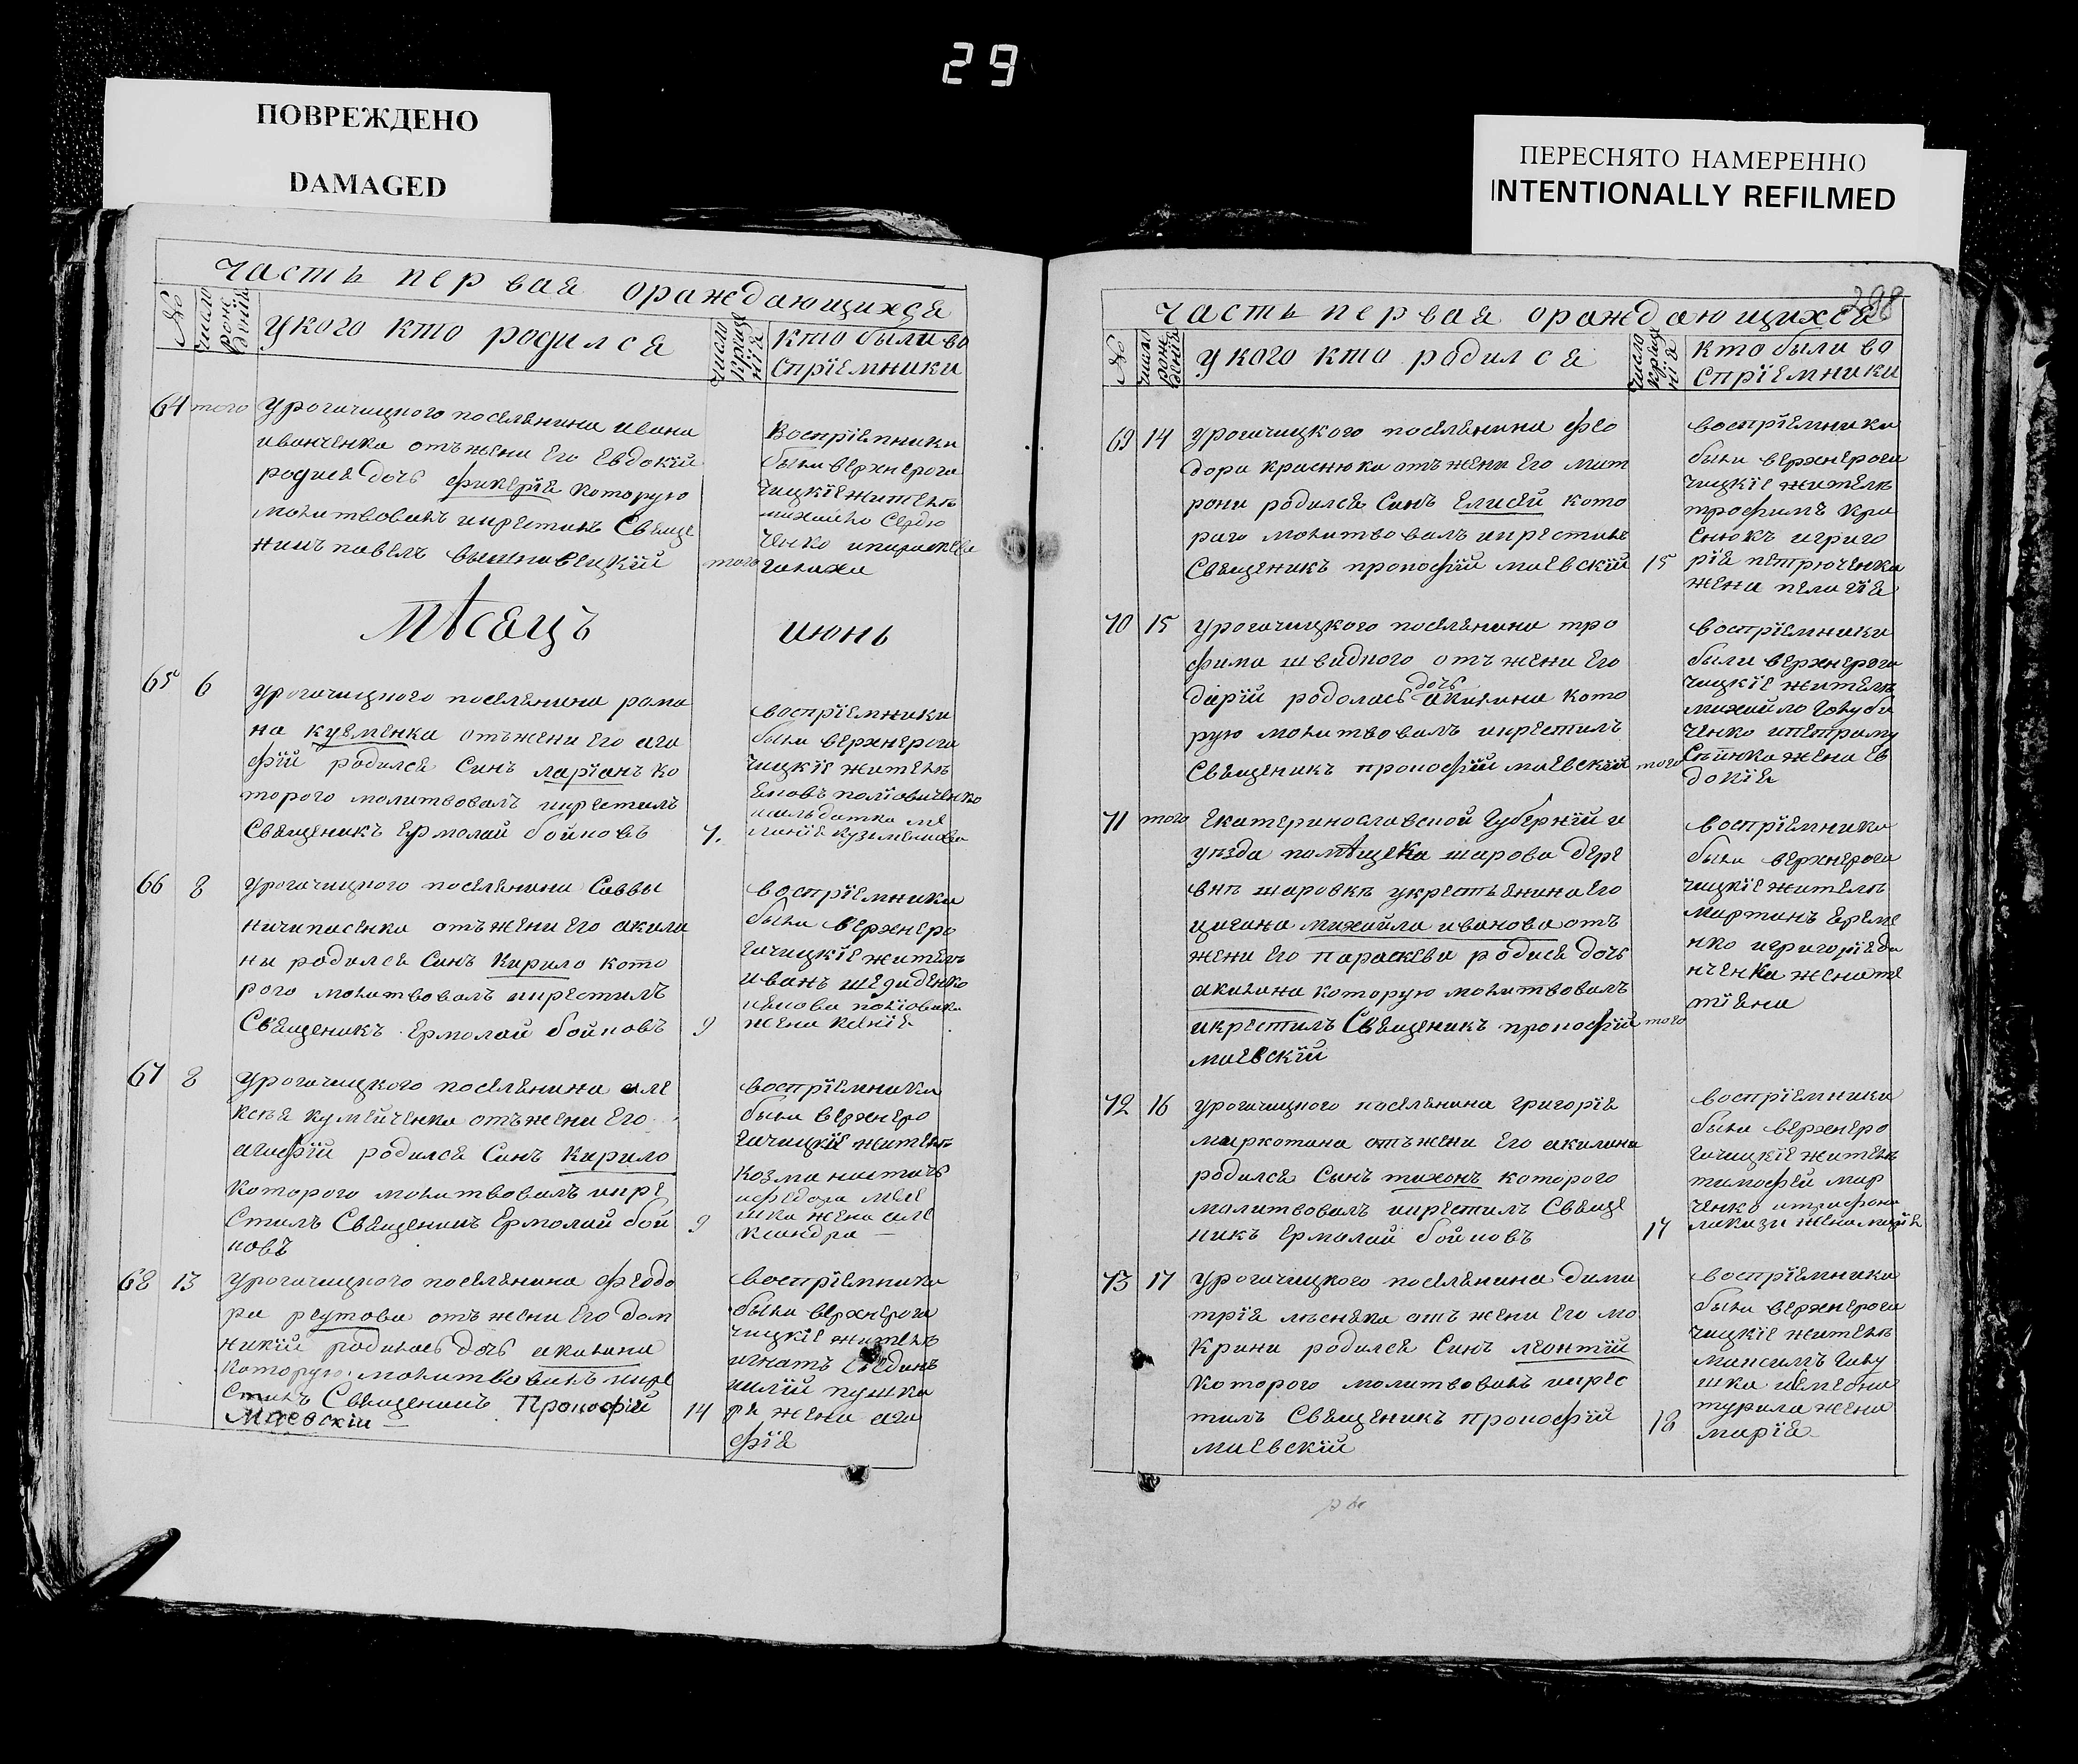 29
ПОВРЕЖДЕНО
DAMAGED
ПЕРЕСНЯТО НАМЕРЕННО
INTENTIONALLY REFILMED
часть первая ораждающихся
№
число рожденій
укого кто родился
число крещенія
кто были во
спріемники
64 того
урогачицкого поселянина ивана
иванченка отъ жени его Евдокій
родися дочь фикерія которую
молитвовалъ икрестилъ Свяще
никъ павелъ вышневецкій
того
Воспріемники
были верхнерога
чицкіе жителѣ
михайло Сердю
ченко ипараскева
Мѣсяцъ июнь
65 6
урогачицкого поселянина рома
на куемченка отъ жени его ага
фій родился Синъ ларіонъ ко
торого молитвовалъ икрестилъ
Священикъ Ермолай бойковъ
7.
воспріемники
были верхнерога
чицкіе жителѣ
66 8
урогачицкого поселянина Саввы
ничипасенка отъ жени его акили
ны родился Синъ Кирило кото
рого молитвовалъ икрестилъ
Священикъ Ермолай бойковъ
9
воспріемники
были верхнеро
гачицкіе жителѣ
иванъ
жена
67 8
урогачицкого поселянина але
ксѣя кумейченка отъ жени его
агафій родился Синъ Кирило
которого молитвовалъ икре
стилъ Священикъ Ермолай бой
ковъ
9
воспріемники
были верхнеро
гачицкіе жителѣ
козма
жена але
ксандра —
68 13
урогачицкого поселянина федо
ра реутова отъ жени его дом
никій родилась дочь акилина
которую молитвовалъ икре
стилъ Священикъ Прокофій
Маевскій —
14
воспріемники
были верхнерога
чицкіе жителѣ
игнатъ
пушка
ря жена ага
фія
298
часть первая ораждающихся
№
число рожденія
укого кто родился
число крещенія
кто были во
спріемники
69 14
урогачицкого поселянина фео
дора краснюка отъ жени его мат
рони родился Синъ Елисей кото
раго молитвовалъ икрестилъ
Священикъ прокофій маевскій
15
воспріемники
были верхнерога
чицкіе жителѣ
трофимъ кра
снюкъ игриго
рія петрюченка
жена пелагія
70 15
урогачицкого поселянина тро
фима швидкого отъ жени его
дарій родолась дочь акилина кото
рую молитвовалъ икрестилъ
Священикъ прокофій маевскій
того
воспріемники
были верхнерога
чицкіе жителѣ
михайло голуби
ченко
жена ев
докія
71 того
Екатеринославской Губерній и
уѣзда помѣщека шарова дере
внѣ шаровкѣ укрестьянина его
цигана михайла иванова отъ
жени его параскеви родися дочь
акилина которую молитвовалъ
икрестилъ Священикъ прокофій
маевскій
того
воспріемники
были верхнерога
чицкіе жителѣ
мартинъ Ереме
нко игригорія да
нченка жена те
тіяна
72 16
урогачицкого поселянина григорія
маркотана отъ жени его акилини
родился Сынъ тихонъ которого
молитвовалъ икрестилъ Свяще
никъ Ермолай бойковъ
17
воспріемники
были верхнеро
гачицкіе жителѣ
тимофей мар
ченко итрифона
73 17
урогачицкого поселянина дими
трія лѣсняка отъ жени его мо
крини родился Синъ леонтій
которого молитвовалъ икрес
тилъ Священикъ прокофій
маевскій
18
воспріемники
были верхнерога
чицкіе жителѣ
максимъ галу
шка
турила жена
марія